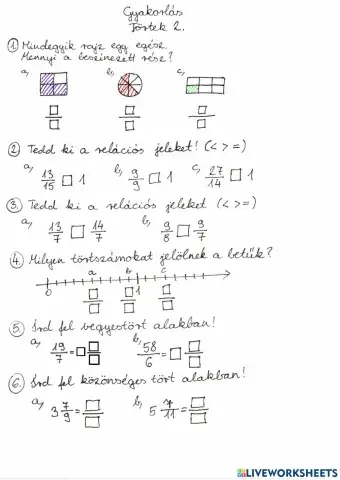 Gyakorlás
Törtek 2.
1. Mindegyik rajz egy egész.
Mennyi a beszínezett rész?
a, b, c,
2. Tedd ki a relációs jeleket! (< > =)
a, 13/15 □ 1 b, 9/9 □ 1 c, 27/14 □ 1
3. Tedd ki a relációs jeleket (< > =)
a, 13/7 □ 14/7 b, 9/8 □ 9/7
4. Milyen törtszámokat jelölnek a betűk?
a b c
0 1
5. Írd fel vegyestört alakban!
a, 19/7 = □ □/□ b, 58/6 = □ □/□
6. Írd fel közönséges tört alakban!
a, 3 7/9 = □/□ b, 5 7/11 = □/□
LIVEWORKSHEETS